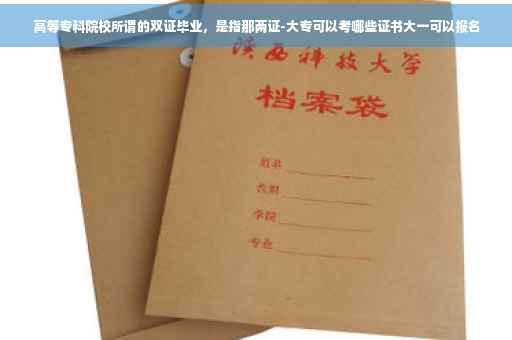 高等专科院校所谓的双证毕业，是指那两证-大专可以考哪些证书大一可以报名
陕西科技大学
档案袋
姓名
学院
专业